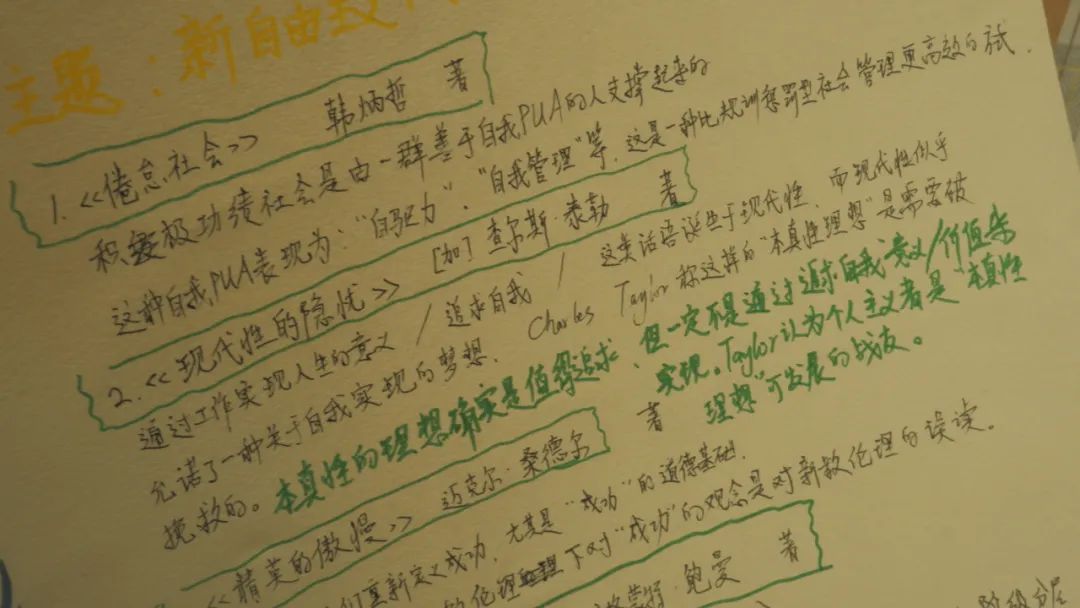 主题：新自由
1.《倦怠社会》 韩炳哲 著
积极功绩社会是由一群善于自我PUA的人支撑起来的
这种自我PUA表现为：“自驱力”、“自我管理”等，这是一种比规训惩罚型社会管理更高效的
2.《现代性的隐忧》 [加]查尔斯·泰勒 著
通过工作实现人生的意义/追求自我/这类话语诞生于现代性，而现代性似乎
允诺了一种关于自我实现的梦想，Charles Taylor称这样的“本真性理想”是需要被
挽救的。本真性的理想确实是值得追求，但一定不是通过追求自我意义/价值来
实现。Taylor认为个人主义者是“本真性
理想”可发展的战友。
《精英的傲慢》 迈克尔·桑德尔 著
们重新定义成功，尤其是“成功”的道德基础，
伦理 下对“成功”的观念是对新教伦理的误读。
鲍曼 著